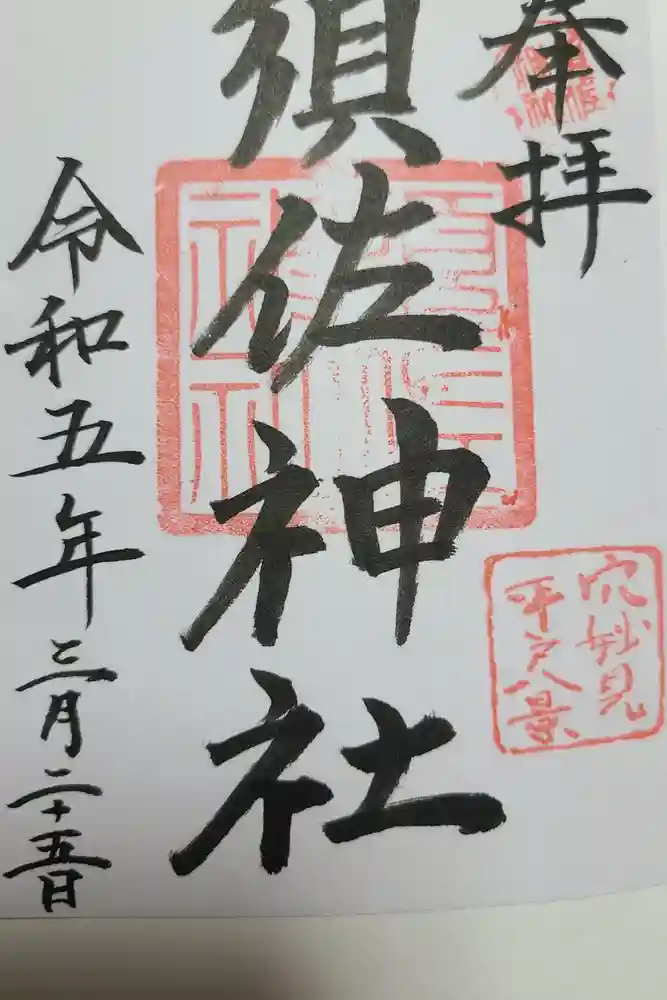 奉拝
須佐神社
穴妙見
平戸八景
令和五年三月二十五日